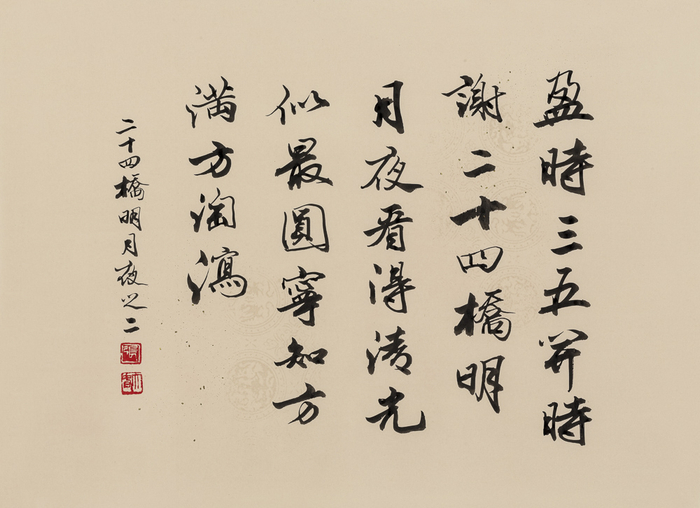 盈時三五并時
謝二十四橋明
月夜看得清光
似最圓寧知方
滿方淘瀉
二十四橋明月夜之二